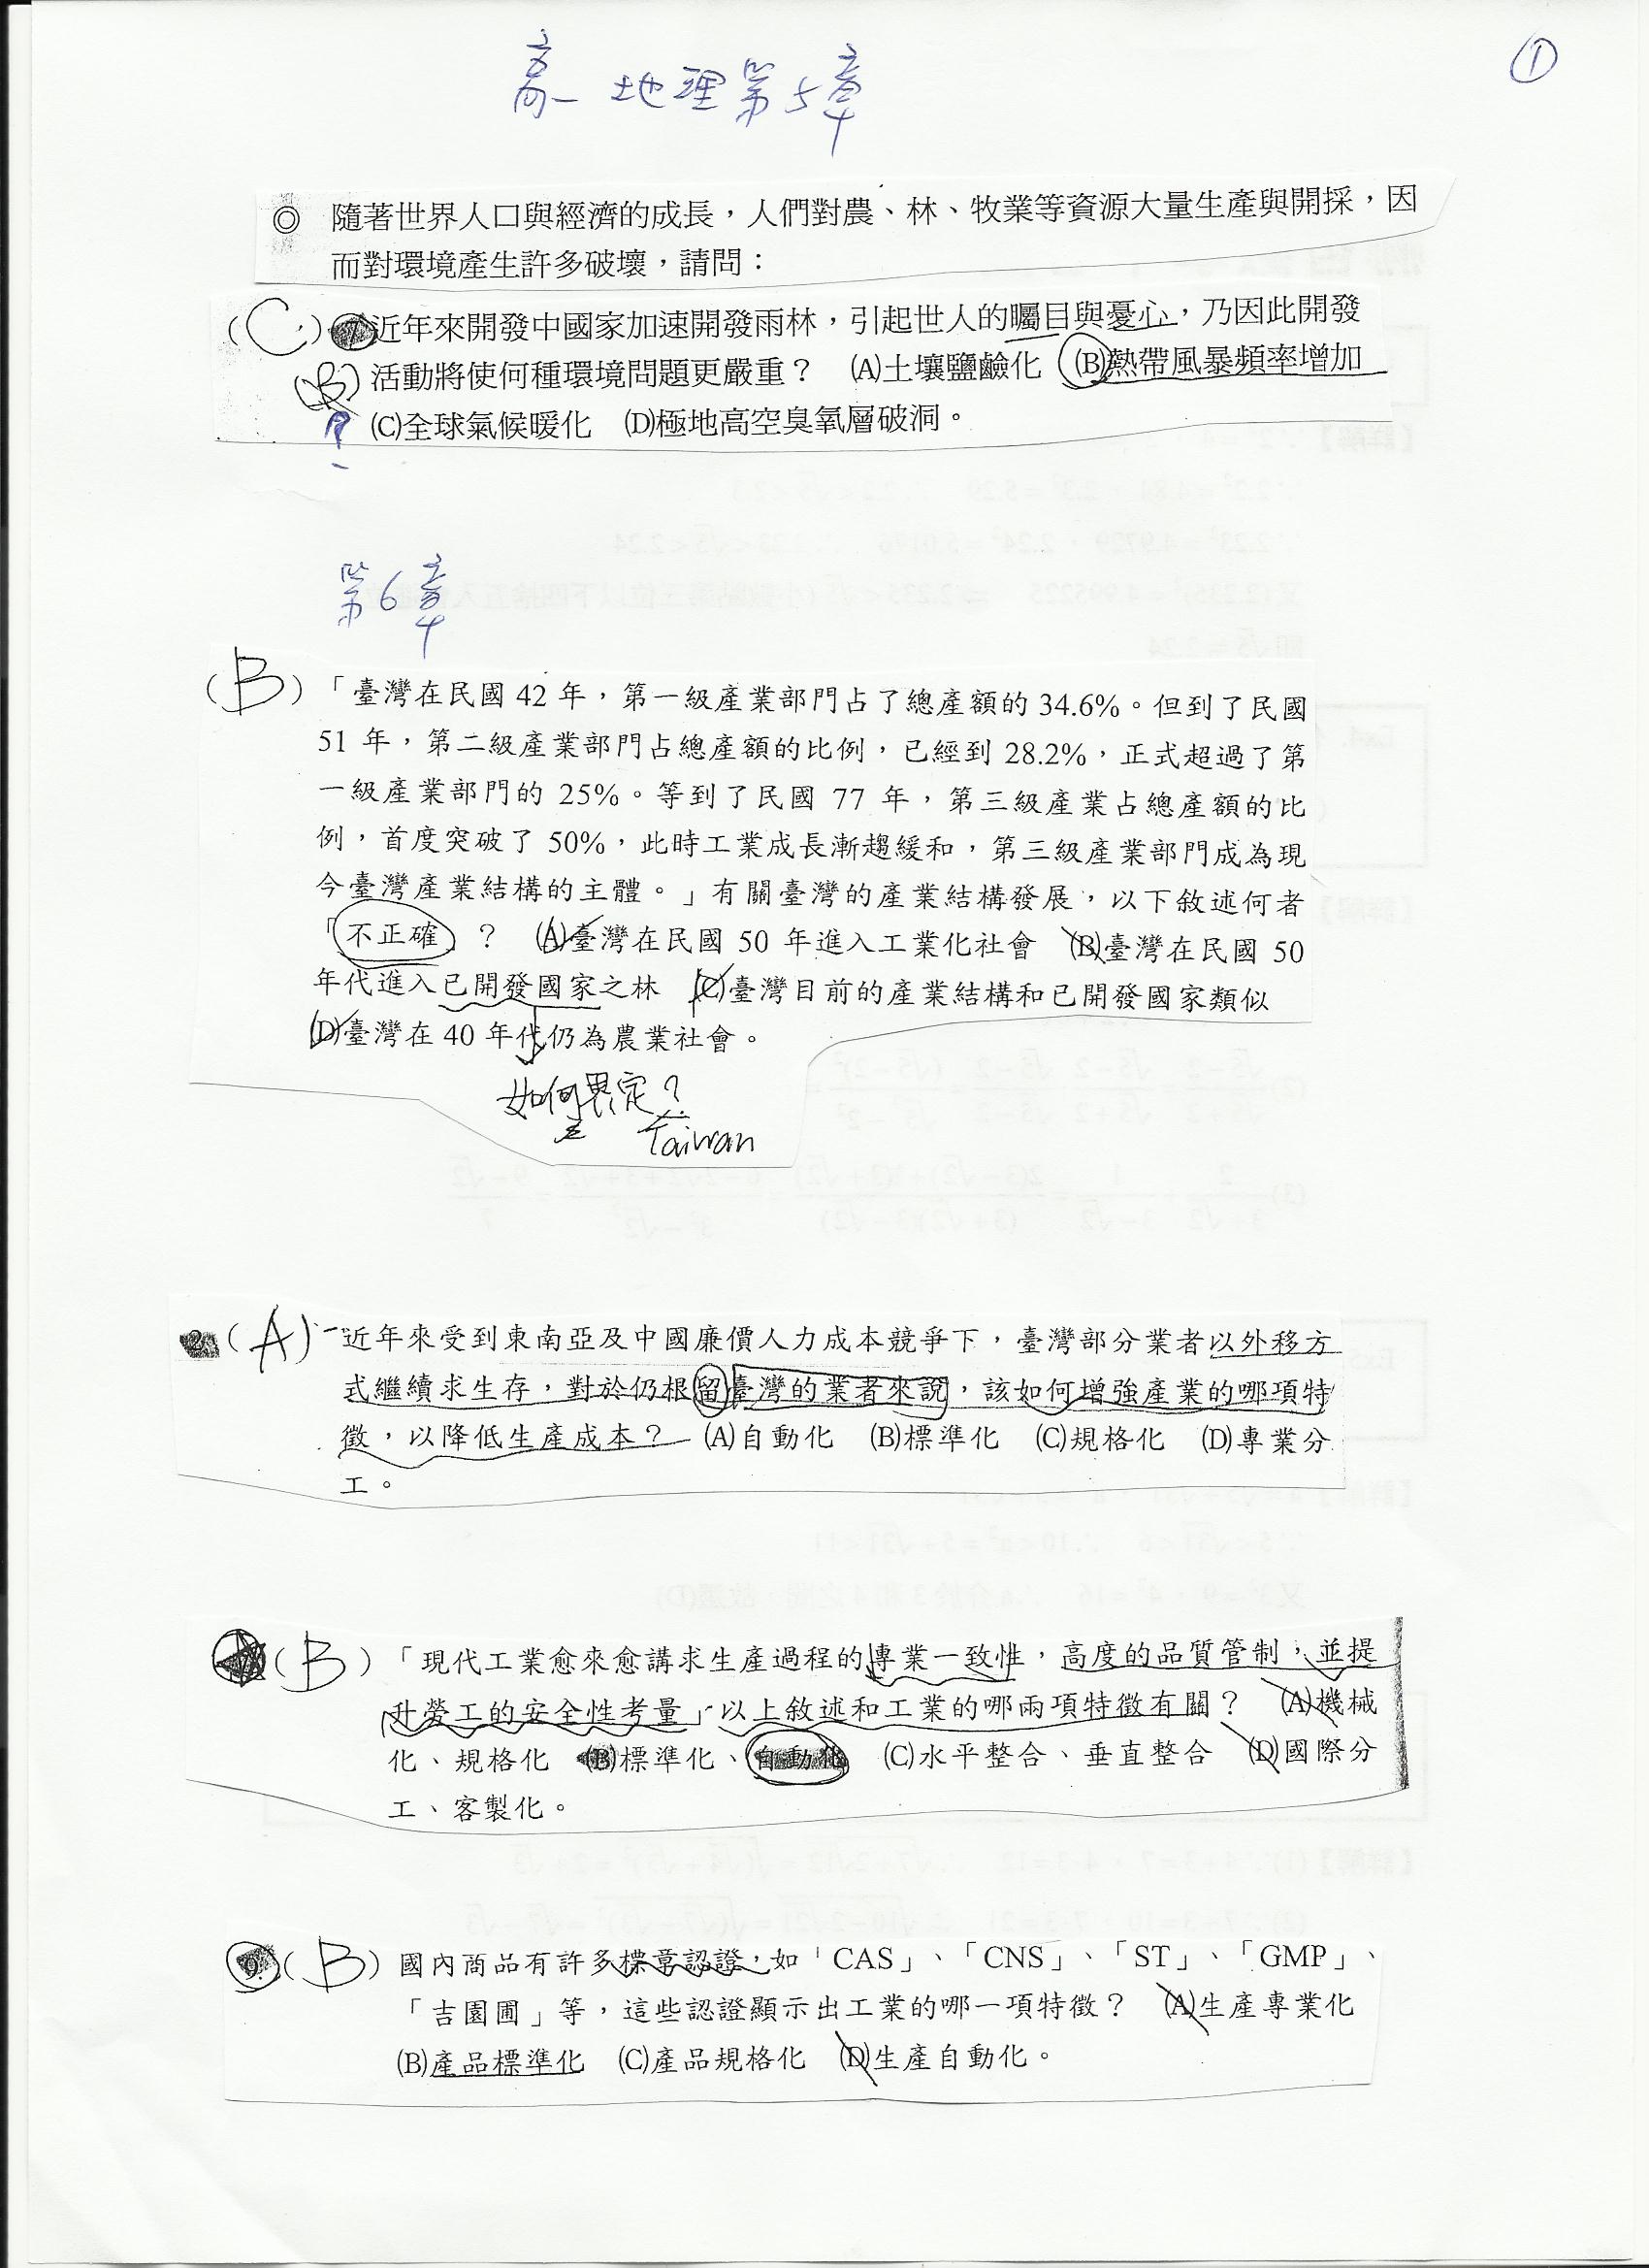 ①
高一地理第5章
◎ 隨著世界人口與經濟的成長，人們對農、林、牧業等資源大量生產與開採，因
而對環境產生許多破壞，請問：
(C) 7. 近年來開發中國家加速開發雨林，引起世人的矚目與憂心，乃因此開發
(B) 活動將使何種環境問題更嚴重？ (A)土壤鹽鹼化 (B)熱帶風暴頻率增加
? (C)全球氣候暖化 (D)極地高空臭氧層破洞。
第6章
(B) 「臺灣在民國 42 年，第一級產業部門占了總產額的 34.6%。但到了民國
51 年，第二級產業部門占總產額的比例，已經到 28.2%，正式超過了第
一級產業部門的 25%。等到了民國 77 年，第三級產業占總產額的比
例，首度突破了 50%，此時工業成長漸趨緩和，第三級產業部門成為現
今臺灣產業結構的主體。」有關臺灣的產業結構發展，以下敘述何者
「不正確」？ (A)臺灣在民國 50 年進入工業化社會 (B)臺灣在民國 50
年代進入已開發國家之林 (C)臺灣目前的產業結構和已開發國家類似
(D)臺灣在 40 年代仍為農業社會。
如何界定？
Taiwan
2. (A) 近年來受到東南亞及中國廉價人力成本競爭下，臺灣部分業者以外移方
式繼續求生存，對於仍根留臺灣的業者來說，該如何增強產業的哪項特
徵，以降低生產成本？ (A)自動化 (B)標準化 (C)規格化 (D)專業分
工。
(B) 「現代工業愈來愈講求生產過程的專業一致性，高度的品質管制，並提
升勞工的安全性考量」以上敘述和工業的哪兩項特徵有關？ (A)機械
化、規格化 (B)標準化、自動化 (C)水平整合、垂直整合 (D)國際分
工、客製化。
9. (B) 國內商品有許多標章認證，如「CAS」、「CNS」、「ST」、「GMP」、
「吉園圃」等，這些認證顯示出工業的哪一項特徵？ (A)生產專業化
(B)產品標準化 (C)產品規格化 (D)生產自動化。